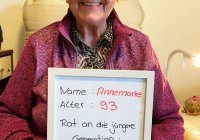 Name: Annemarie
Alter: 93
Rat an die jüngere
Generation: